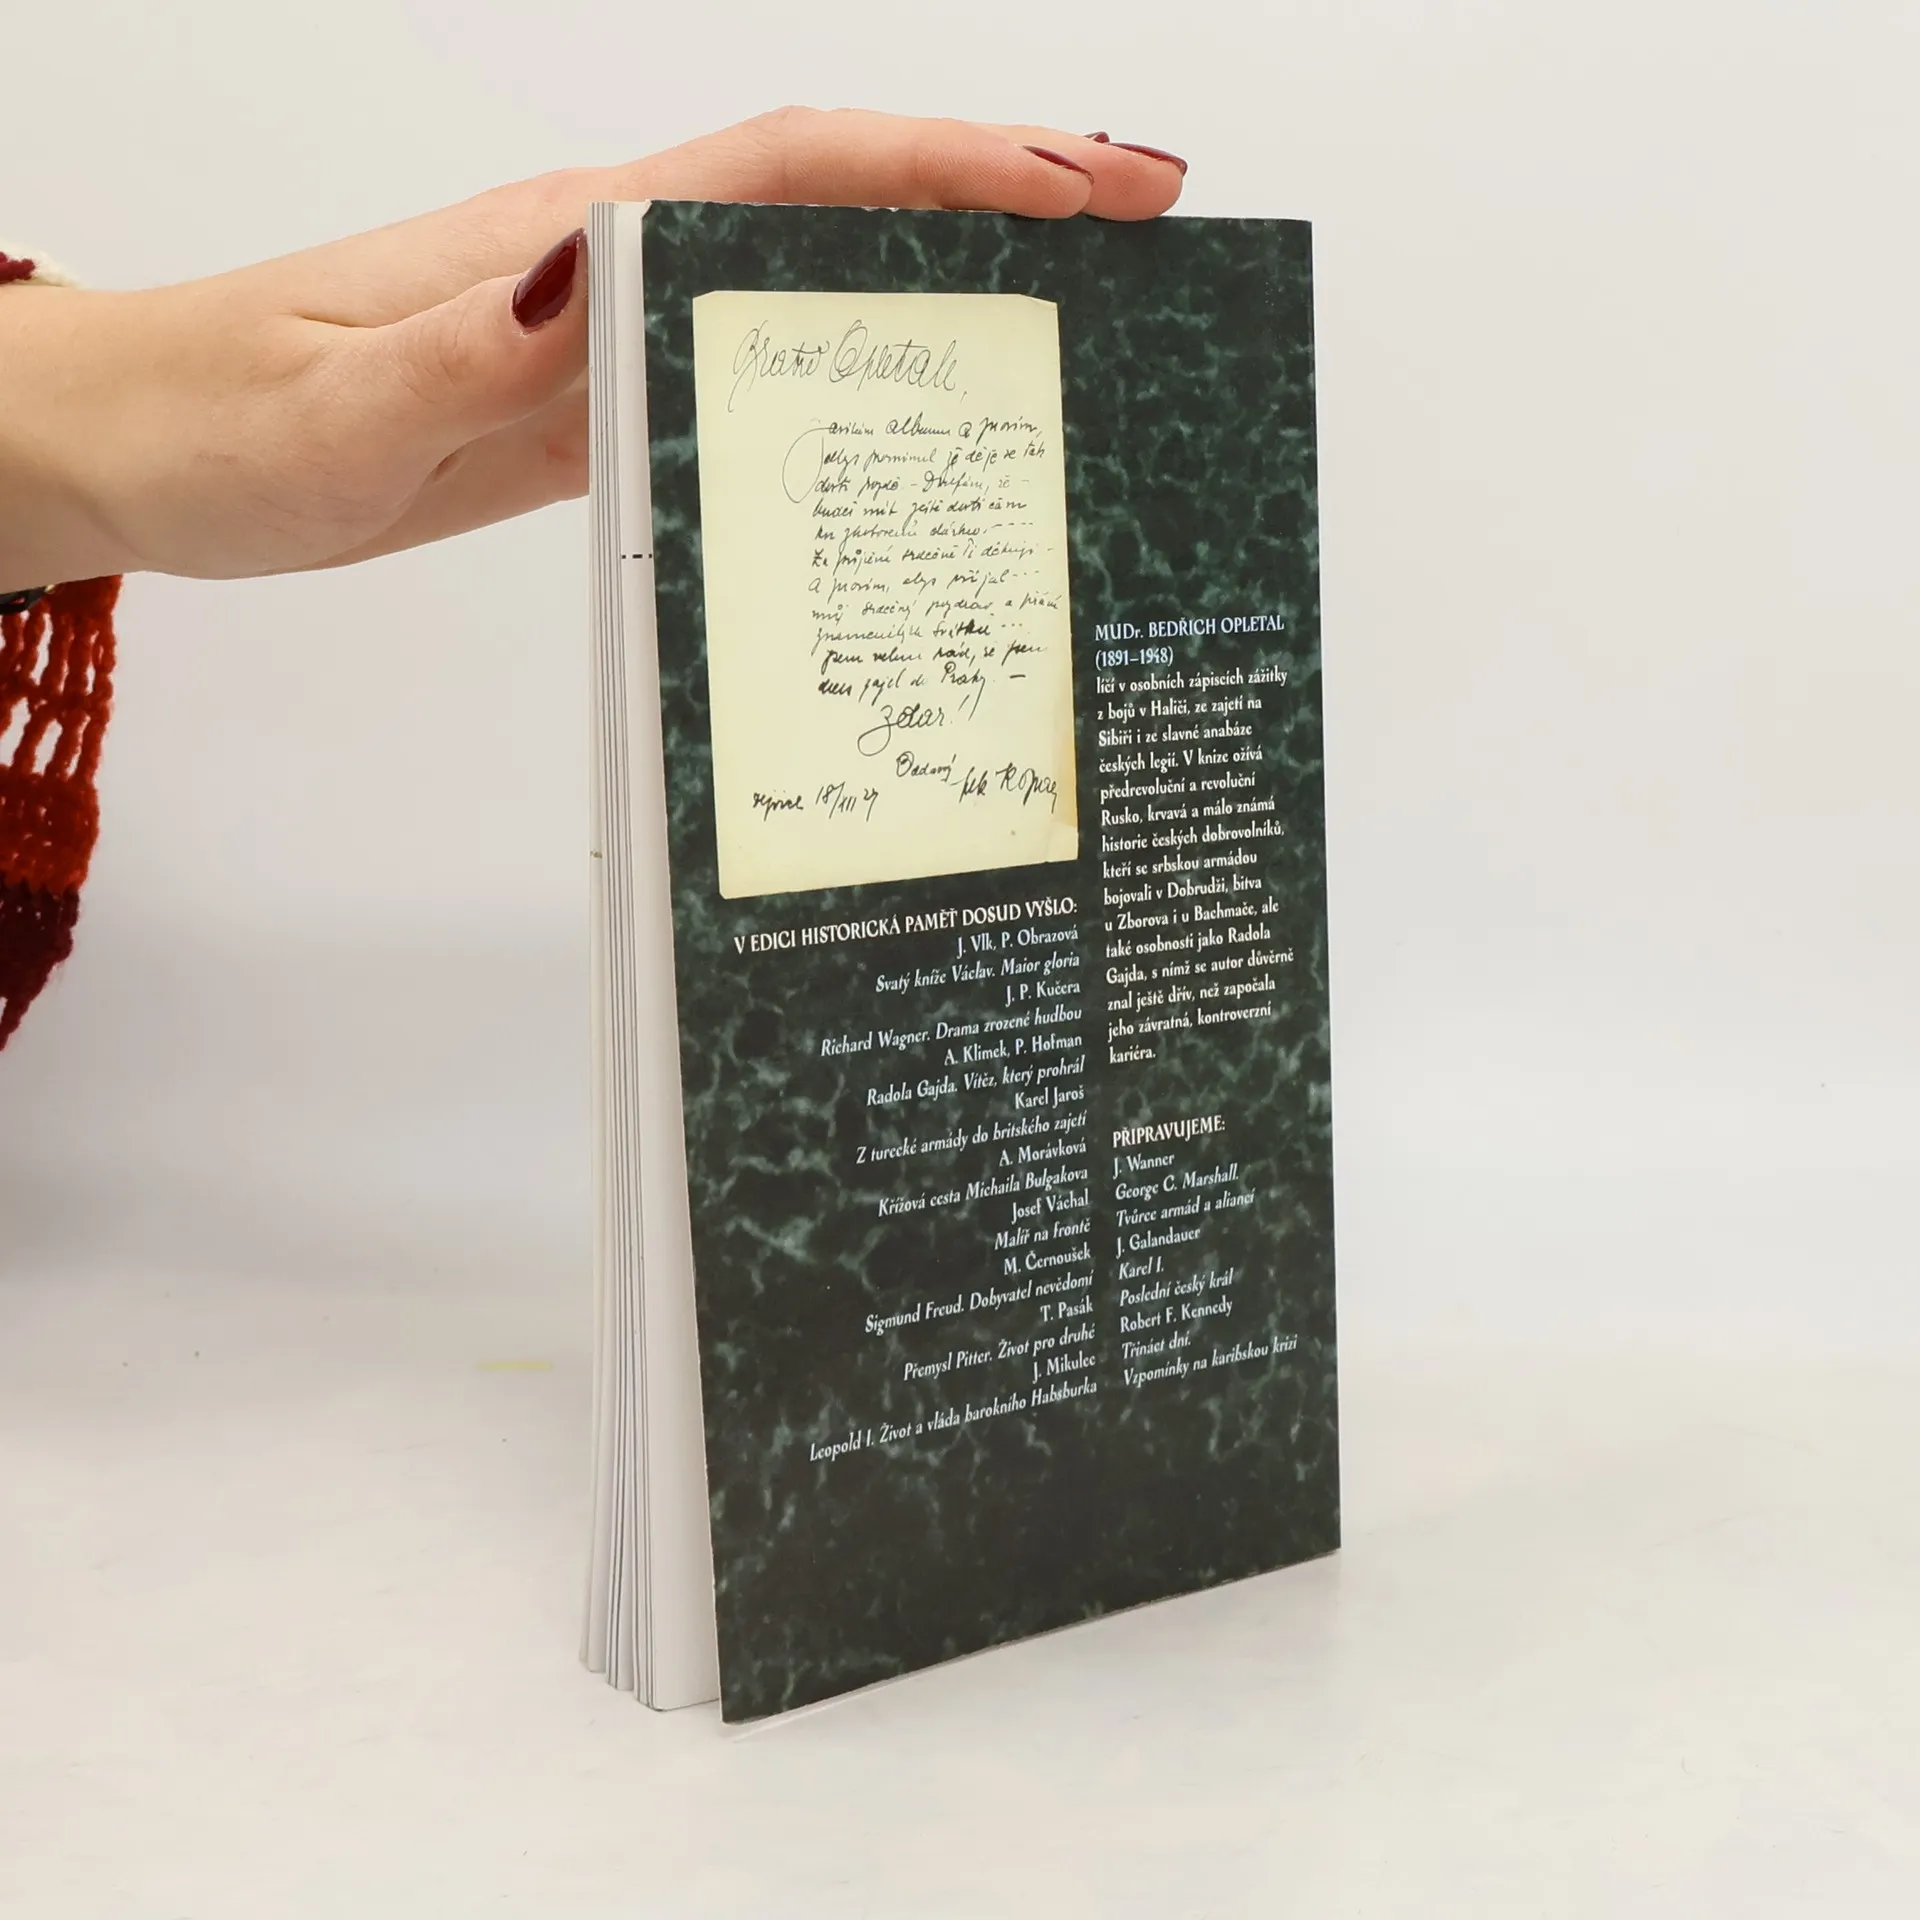 Bratře Opletale,
album a prosím,
že děje se tak
dosti pozdě. - Doufám, že -
budeš mít ještě dosti času
Za přijetí srdečně Ti děkuji -
a prosím, abys přijal ---
můj srdečný pozdrav a přání
jsem velmi rád, že jsem
dnes zajel do Prahy. -
Zdar!
Oddaný
18/XII 27
MUDr. BEDŘICH OPLETAL
(1891–1948)
líčí v osobních zápiscích zážitky
z bojů v Haliči, ze zajetí na
Sibiři i ze slavné anabáze
českých legií. V knize ožívá
předrevoluční a revoluční
Rusko, krvavá a málo známá
historie českých dobrovolníků,
kteří se srbskou armádou
bojovali v Dobrudži, bitva
u Zborova i u Bachmače, ale
také osobnosti jako Radola
Gajda, s nímž se autor důvěrně
znal ještě dřív, než započala
jeho závratná, kontroverzní
kariéra.
V EDICI HISTORICKÁ PAMĚŤ DOSUD VYŠLO:
J. Vlk, P. Obrazová
Svatý kníže Václav. Maior gloria
J. P. Kučera
Richard Wagner. Drama zrozené hudbou
A. Klimek, P. Hofman
Radola Gajda. Vítěz, který prohrál
Karel Jaroš
Z turecké armády do britského zajetí
A. Morávková
Křížová cesta Michaila Bulgakova
Josef Váchal
Malíř na frontě
M. Černoušek
Sigmund Freud. Dobyvatel nevědomí
T. Pasák
Přemysl Pitter. Život pro druhé
J. Mikulec
Leopold I. Život a vláda barokního Habsburka
PŘIPRAVUJEME:
J. Wanner
George C. Marshall.
Tvůrce armád a aliancí
J. Galandauer
Karel I.
Poslední český král
Robert F. Kennedy
Třináct dní.
Vzpomínky na karibskou krizi